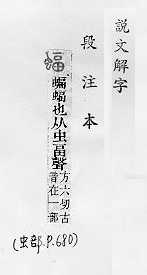 說文解字
段注本
蝠 蝙蝠也从虫畐聲方六切古音在一部
(虫部.P.680)